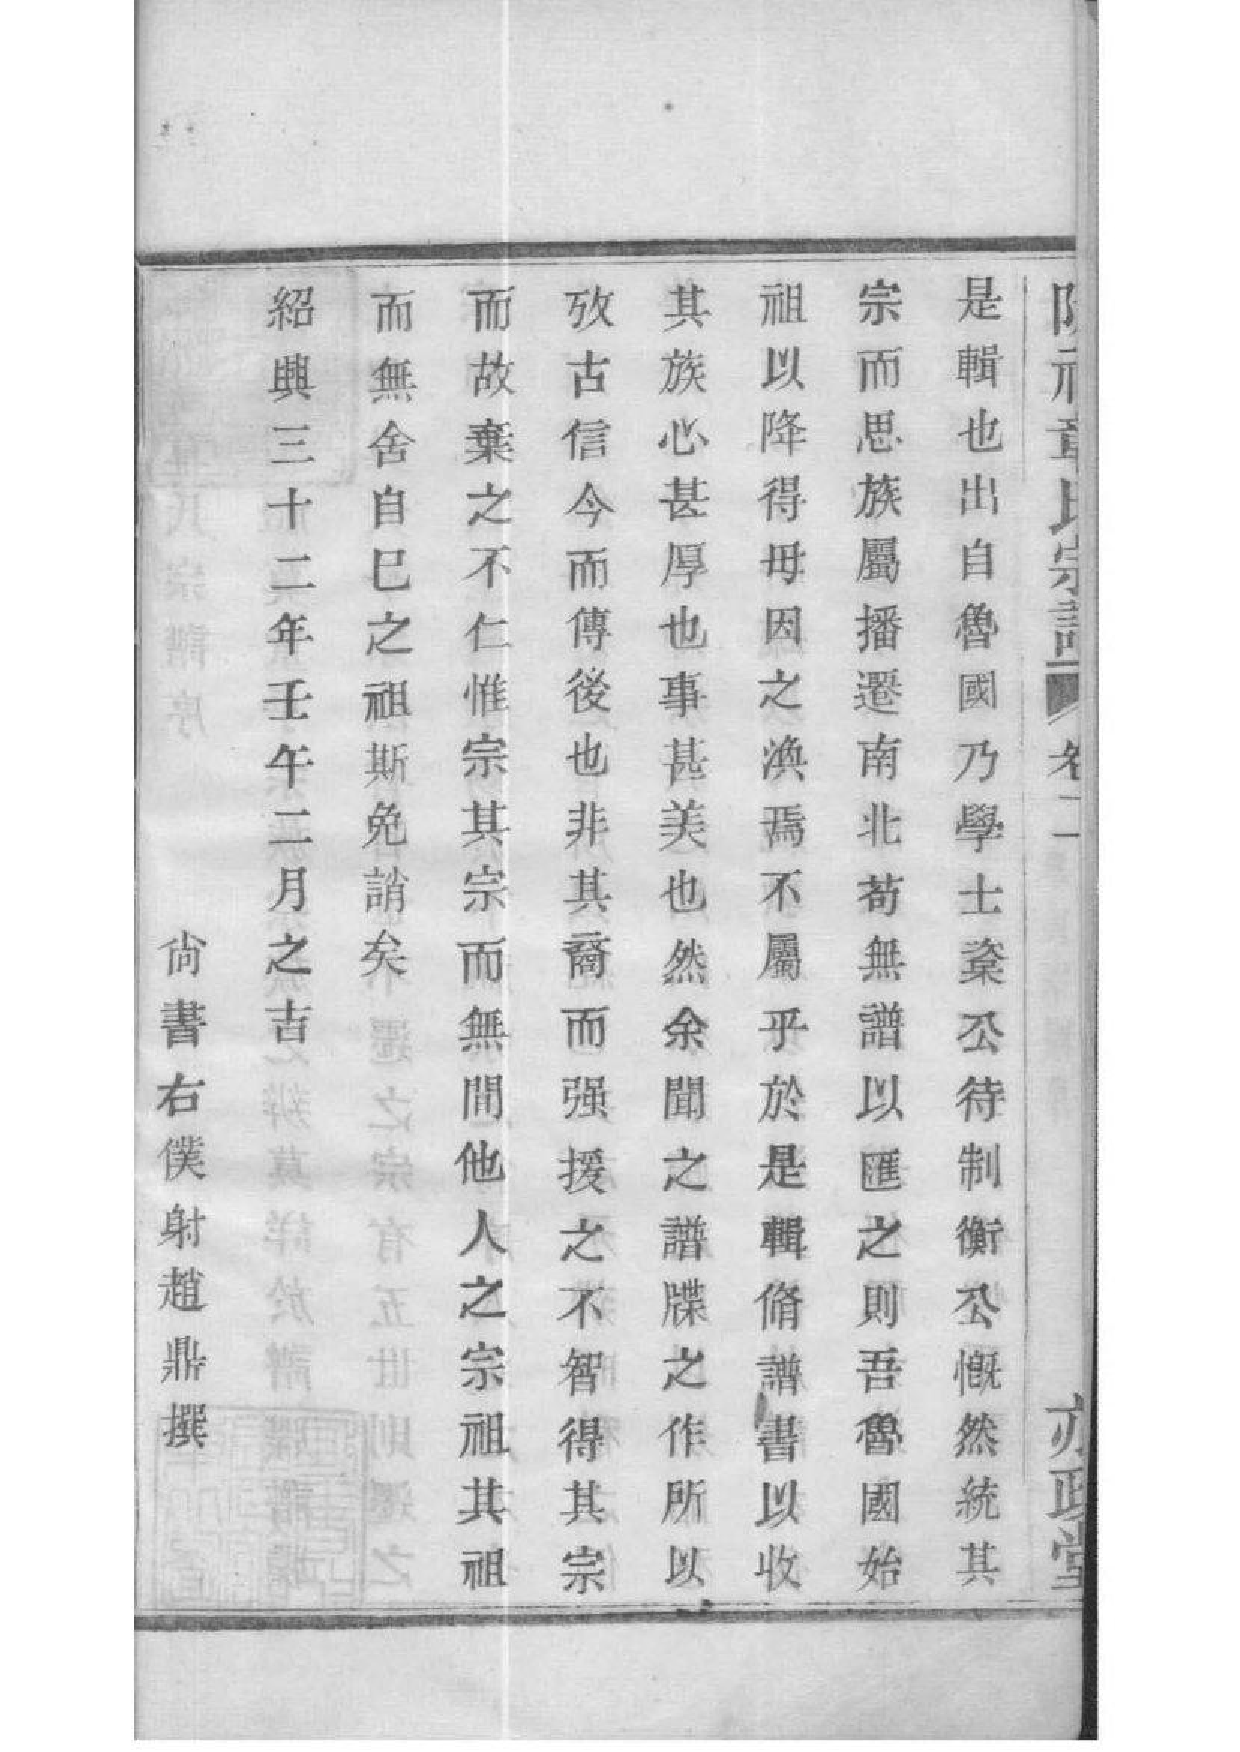 章氏宗譜 卷二 亦政堂
是輯也出自魯國乃學士粢公待制衡公慨然統其
宗而思族屬播遷南北茍無譜以匯之則吾魯國始
祖以降得毋因之渙焉不屬乎於是輯脩譜書以收
其族心甚厚也事甚美也然余聞之譜牒之作所以
攷古信今而傳後也非其裔而强援之不智得其宗
而故棄之不仁惟宗其宗而無間他人之宗祖其祖
而無舍自巳之祖斯免誚矣
紹興三十二年壬午二月之吉
尙書右僕射趙鼎撰